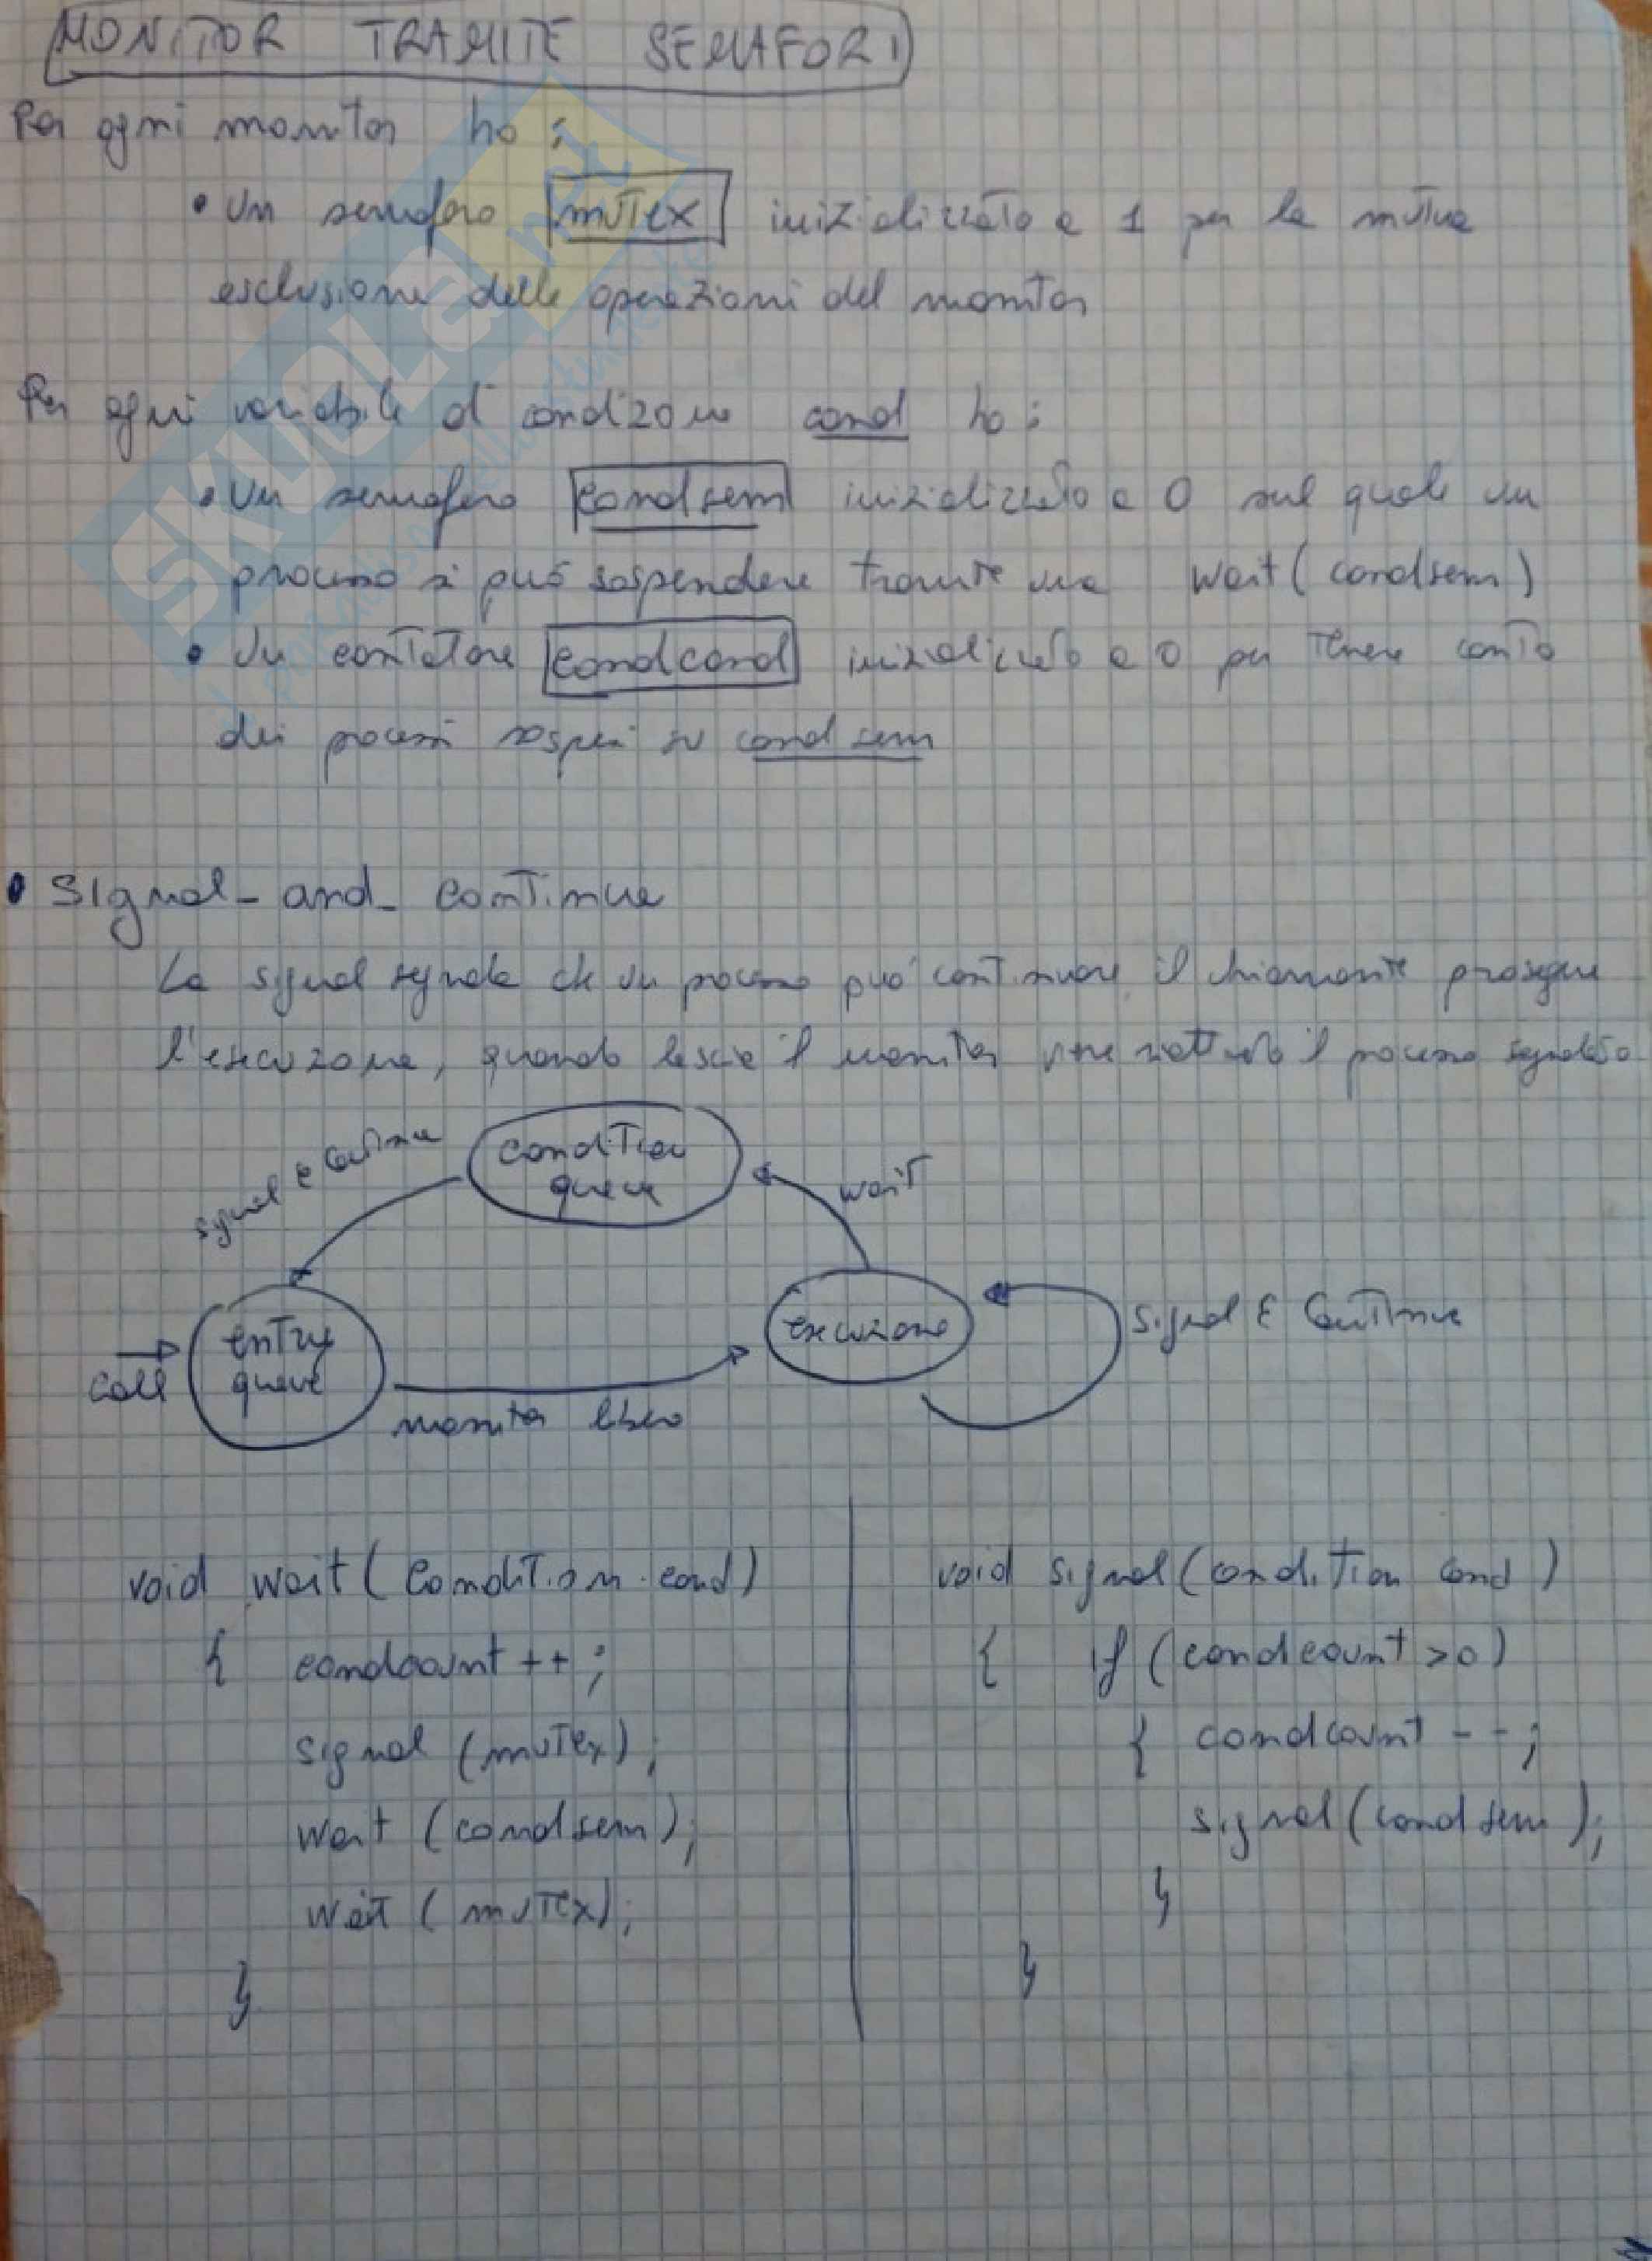 MONITOR TRAMITE SEMAFORI
Per ogni monitor ho :
• Un semaforo mutex inizializzato a 1 per la mutua
esclusione delle operazioni del monitor
Per ogni variabile di condizione cond ho :
• Un semaforo condsem inizializzato a 0 sul quale un
processo si può sospendere tramite una wait(condsem)
• Un contatore condcond inizializzato a 0 per tenere conto
dei processi sospesi su condsem
• Signal_and_continue
La signal segnala che un processo può continuare, il chiamante prosegue
l'esecuzione, quando lascia il monitor viene riattivato il processo segnalato
signal & continue
condition
queue
wait
call
entry
queue
monitor libero
esecuzione
signal & continue
void wait(condition cond)
{ condcount ++ ;
signal (mutex);
wait (condsem);
wait (mutex);
}
void signal(condition cond )
{ if (condcount >0)
{ condcount --;
signal(condsem);
}
}
SKUOLA.net